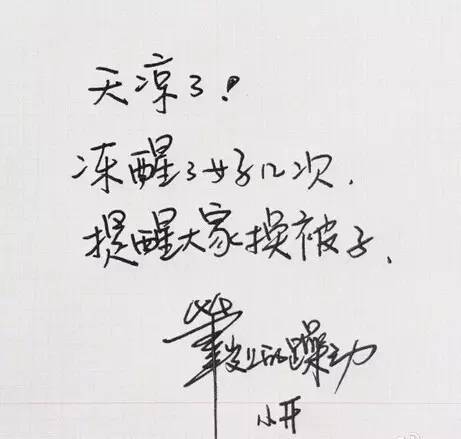 天凉了！
冻醒了好几次，
提醒大家换被子，
笔尖上的躁动
小开